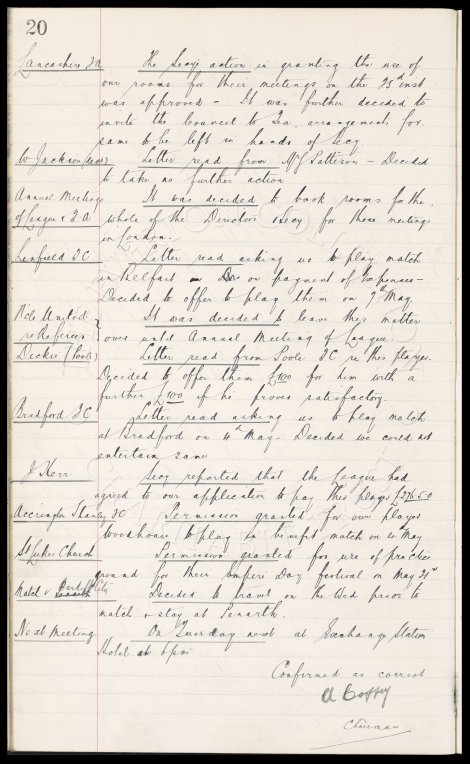 20
Lancashire F.A The Secy's action in granting the use of
our rooms for their meetings on the 25d inst
was approved - It was further decided to
invite the Council to Tea. arrangements for
same to be left in hands of Secy.
W Jackson (decd) Letter read from Mr J Patterson - Decided
to take no further action
Annual Meetings It was decided to book rooms for the
of League & F.A whole of the Directors & Secy for these meetings
in London.
Linfield FC Letter read asking us to play match
in Belfast on payment of Expenses -
Decided to offer to play them on 9th May.
It was decided to leave this matter
N'cle United
re Referees over until Annual Meeting of League
Dickie (Poole) Letter read from Poole FC re this player.
Decided to offer them £100 for him with a
further £100 if he proves satisfactory.
Bradford FC Letter read asking us to play match
at Bradford on 4th May - Decided we could not
entertain same
J Kerr Secy reported that the League had
agreed to our application to pay this player £276-5-0
Accrington Stanley FC Permission granted for our player
Woodhouse to play in benefit match on 4 May
St Lukes Church Permission granted for use of practice
ground for their Empire Day festival on May 21st
Match v Cardiff City Decided to travel on the Wed prior to
match & stay at Penarth.
Next Meeting On Tuesday next at Exchange Station
Hotel at 6pm
Confirmed as correct
Chairman